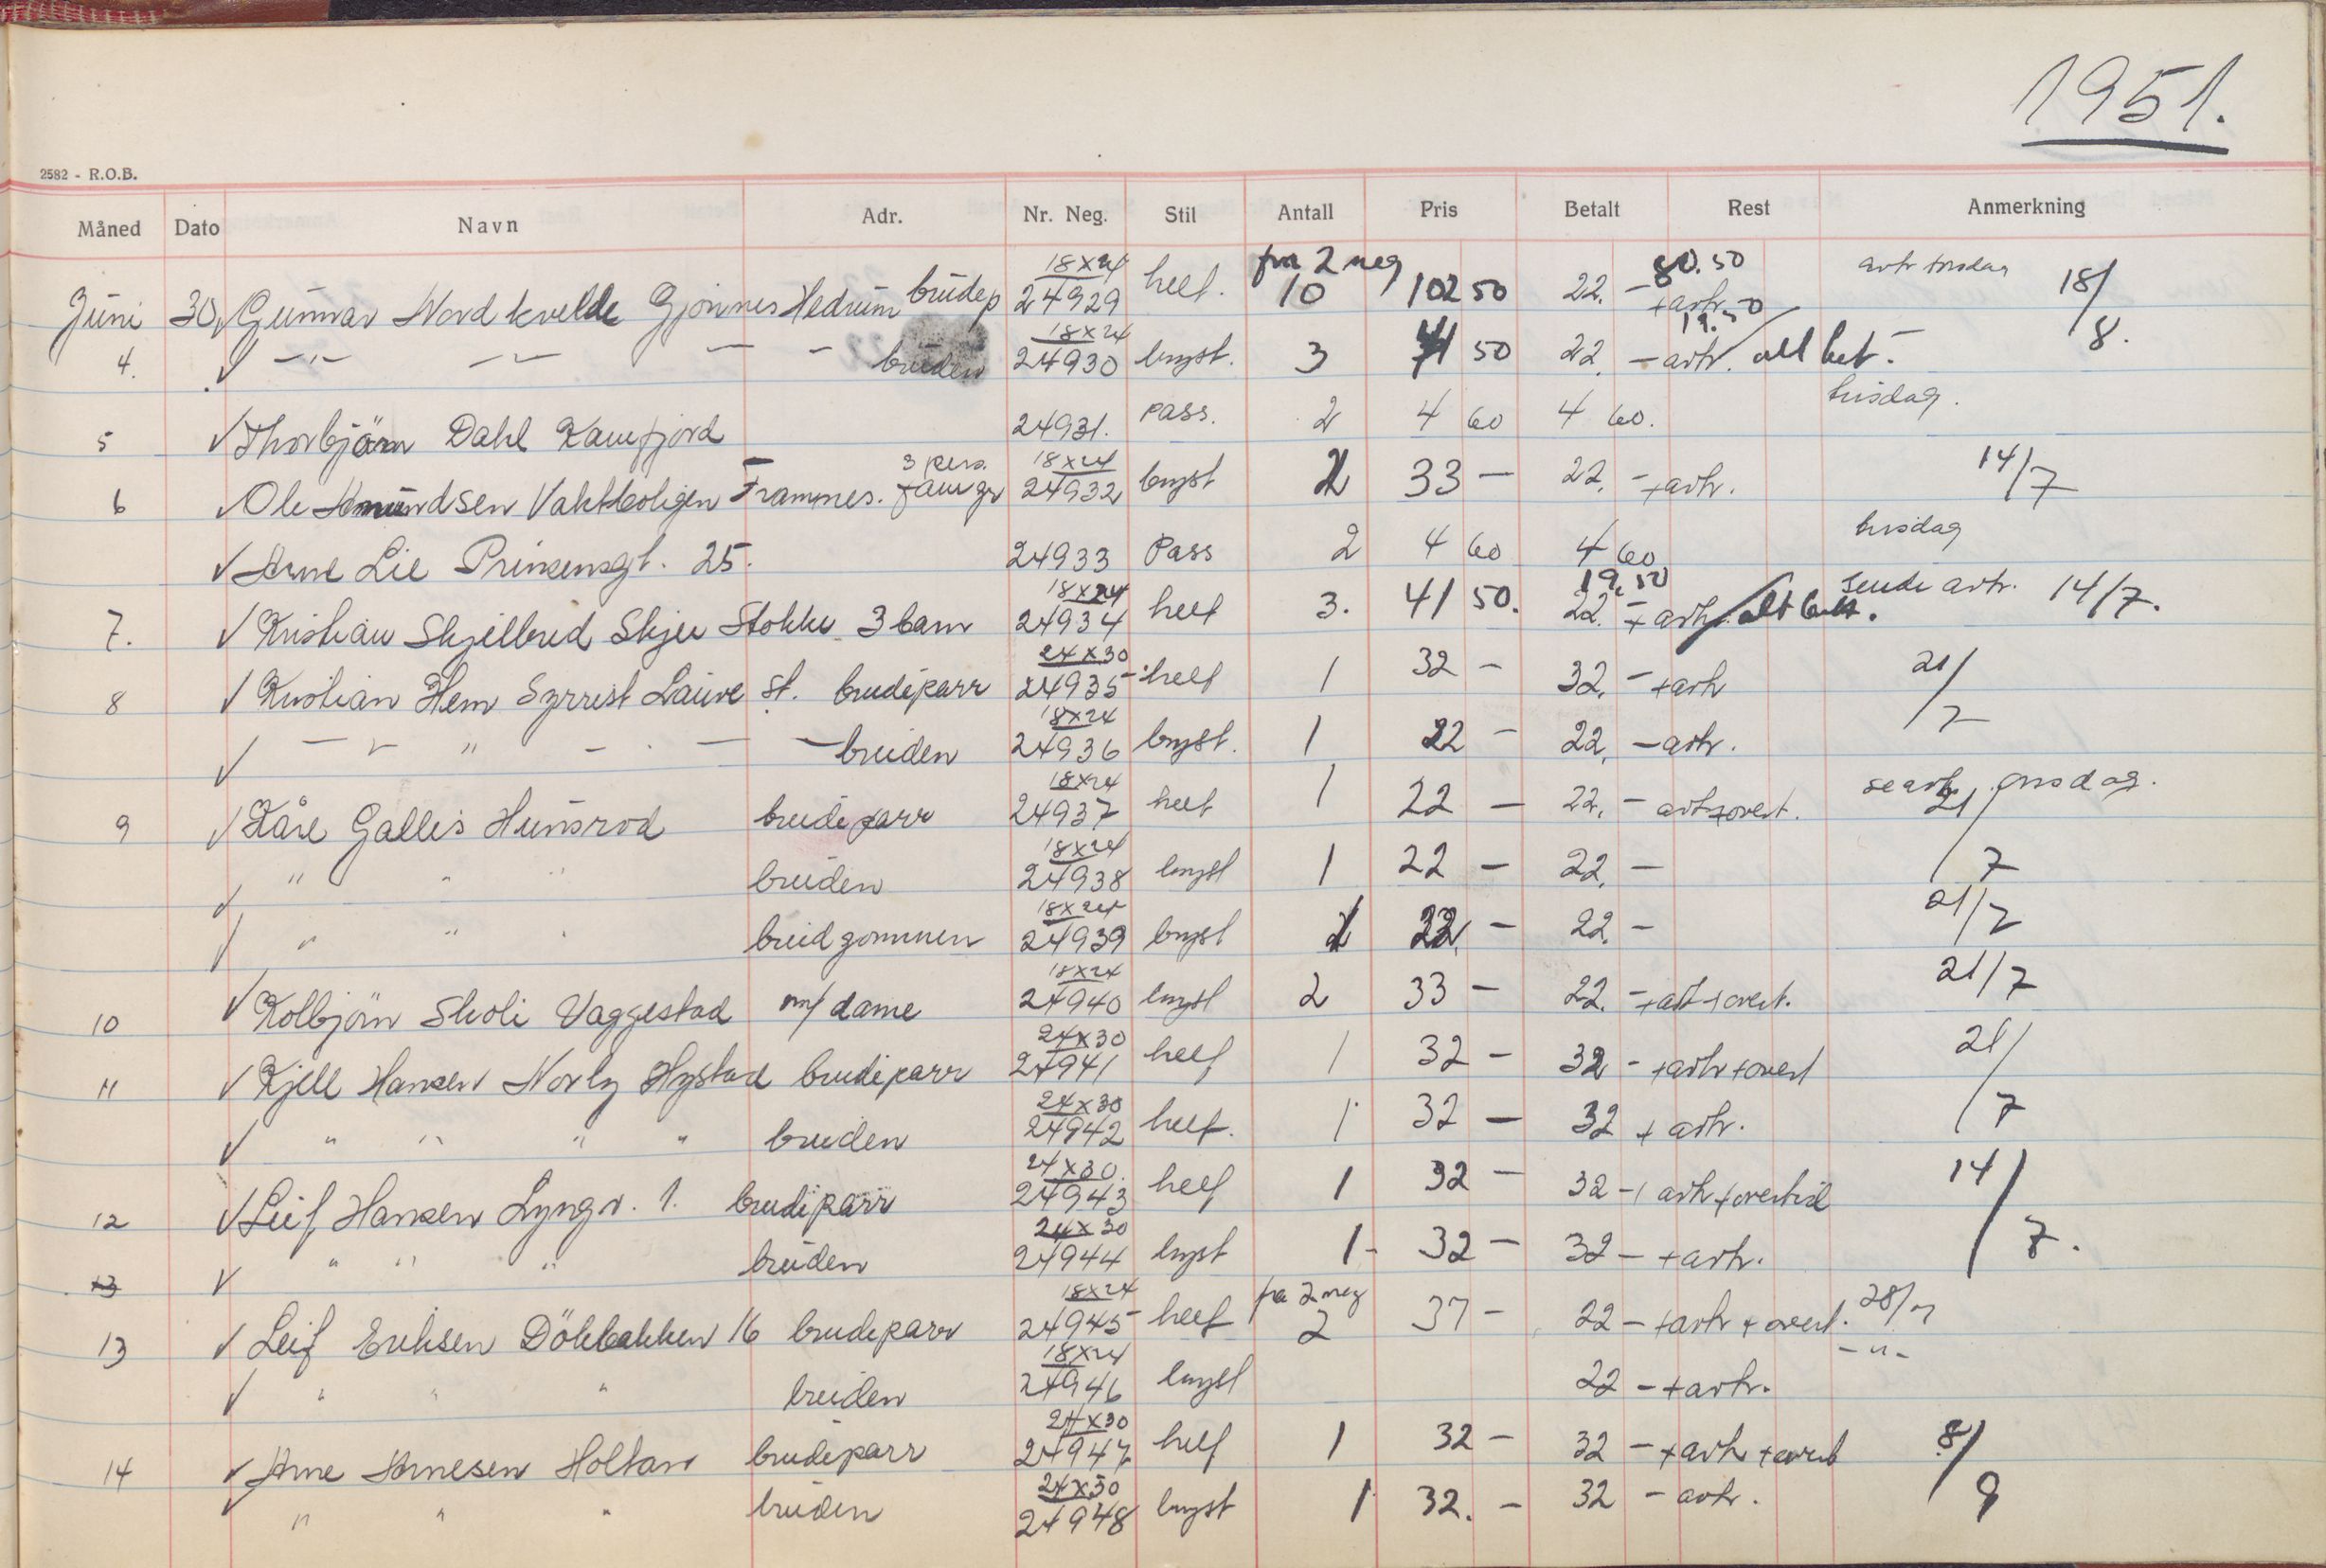 1951.
2582 - R.O.B.
Måned Dato Navn Adr. Nr. Neg. Stil Antall Pris Betalt Rest Anmerkning
Juni 30 Gunnar Nordkvelde Gjønnes Hedrum brudep 18x24 24929 helf. fra 2 neg 10 102 50 22. - 80.50 + avtr. 18/8.
4. -"- - - bruden 18x24 24930 byst. 3 41 50 22. - 19.50 avtr. alt bet.
5 Thorbjörn Dahl Kamfjord 24931. pass. 2 4 60 4 60. tirsdag.
6 Ole Amundsen Vaktboligen Framnes. 3 pers. fam gr 18x24 24932 byst 2 33 - 22. - + avtr. 14/7
Arne Lie Prinsensgt. 25. 24933 Pass 2 4 60 4 60 tirsdag
7. Kristian Skjelbred Skjee Stokke 3 barn 18x24 24934 helf 3. 41 50. 19.50 22. - + avtr. alt bet. sende avtr. 14/7.
8 Kristian Hem Syrrist Lauve st. brudeparr 24x30 24935 helf 1 32 - 32. - + avtr 21/7
- " - bruden 18x24 24936 byst. 1 22 - 22. - avtr.
9 Kåre Gallis Hunsrod brudeparr 18x24 24937 helf 1 22 - 22. - avtr + overt. se avtr. onsdag. 21/7
" " " bruden 18x24 24938 byst 1 22 - 22. -
" " " brudgommen 18x24 24939 byst 1 22 - 22. - 21/7
10 Kolbjörn Skoli Vaggestad m/ dame 18x24 24940 byst 2 33 - 22. - + avt + overt. 21/7
11 Kjell Hansen Norby Hystad brudeparr 24x30 24941 helf 1 32 - 32 - + avtr + overt 21/7
" " " " bruden 24x30 24942 helf. 1 32 - 32 + avtr.
12 Leif Hansen Lyngv. 1. brudeparr 24x30. 24943 helf 1 32 - 32 - + avtr + overtid 14/7.
13 " " " bruden 24x30 24944 byst 1 - 32 - 32 - + avtr.
13 Leif Eriksen Dölebakken 16 brudeparr 18x24 24945 helf fra 2 neg 2 37 - 22 - + avtr + overt. 28/7
" " " bruden 18x24 24946 byst 22 - + avtr. - " -
14 Arne Arnesen Holtan brudeparr 24x30 24947 helf 1 32 - 32 - + avtr + overt 8/9
" " " bruden 24x30 24948 byst 1 32. - 32 - avtr.